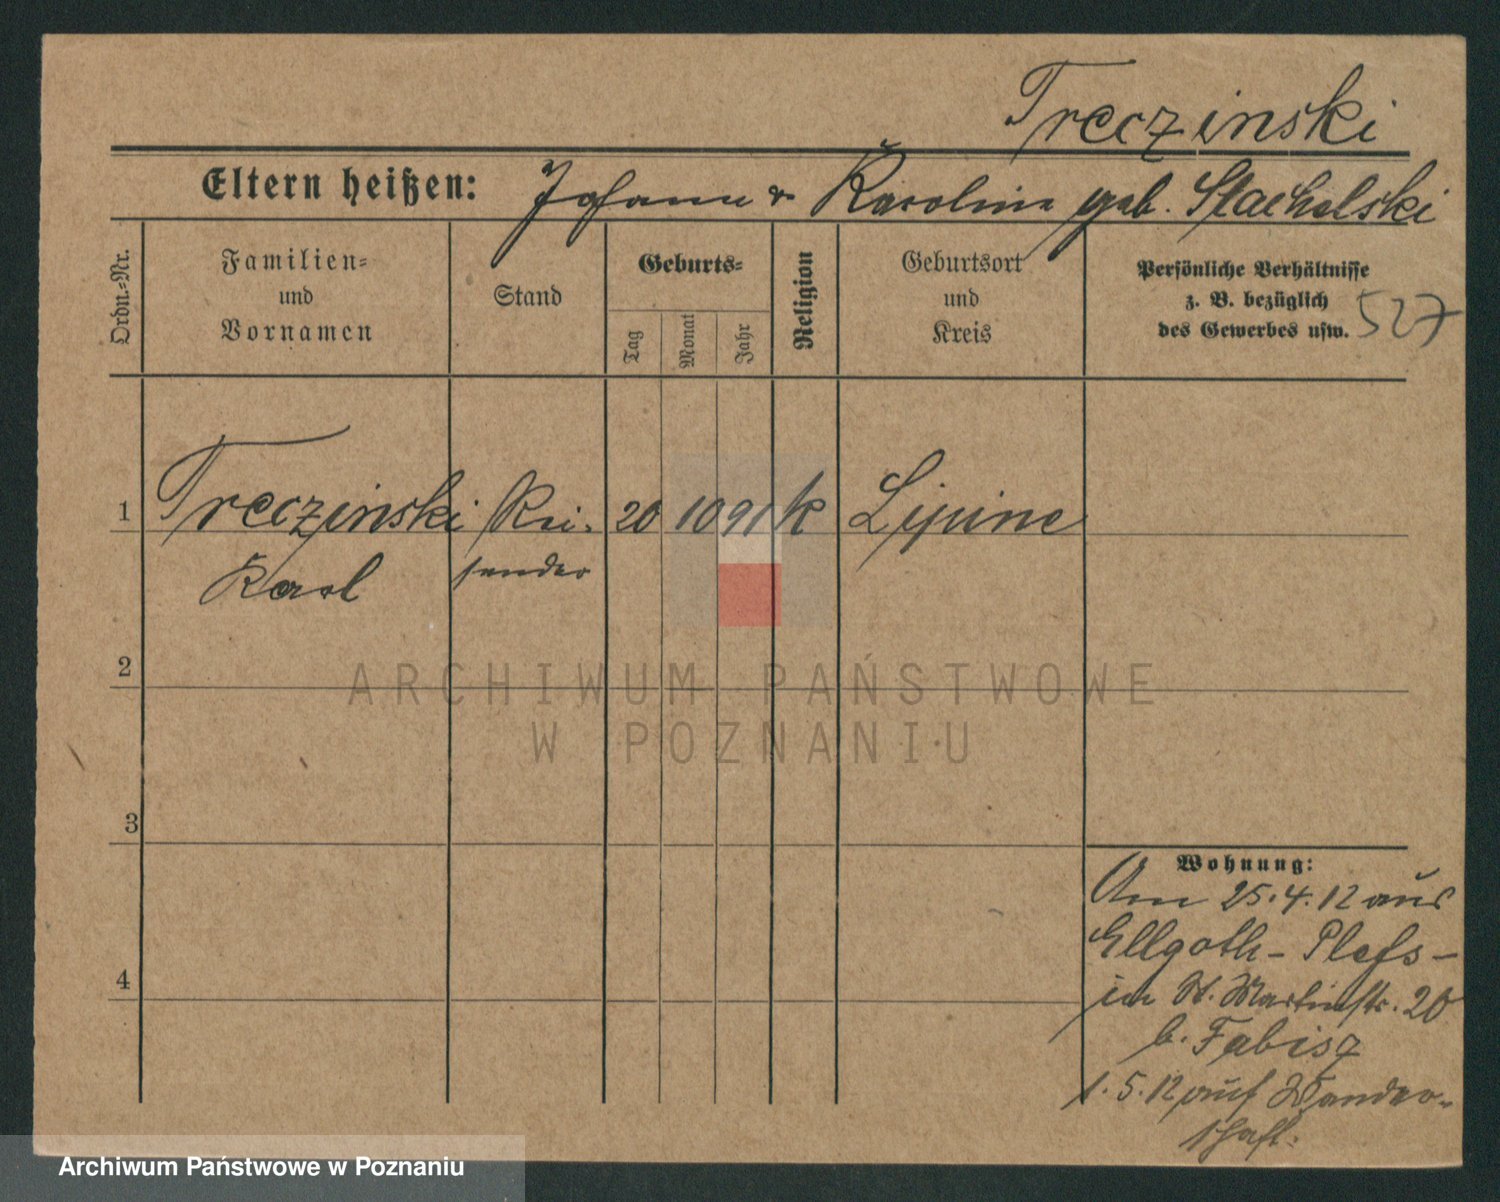 Treczinski
Eltern heißen: Johann & Karolina geb. Stachelski
Ordn.-Nr.
Familien-
und
Vornamen
Stand
Geburts-
Tag
Monat
Jahr
Religion
Geburtsort
und
Kreis
Persönliche Verhältnisse
z. B. bezüglich
des Gewerbes usw.
527
1 Treczinski Rei- 20 10 91 k Lipine
Karl sender
2
3
4
Wohnung:
Am 25.4.12 aus
Ellgoth- Pless-
in St. Martinstr. 20
b. Fabisz
1.5.12 auf Wander-
schaft.
ARCHIWUM PAŃSTWOWE
W POZNANIU
Archiwum Państwowe w Poznaniu